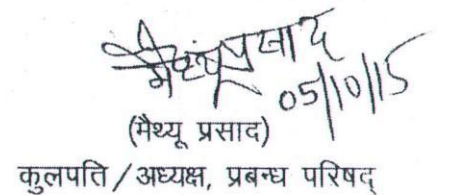 मैथ्यू प्रसाद
05/10/15
(मैथ्यू प्रसाद)
कुलपति/अध्यक्ष, प्रबन्ध परिषद्